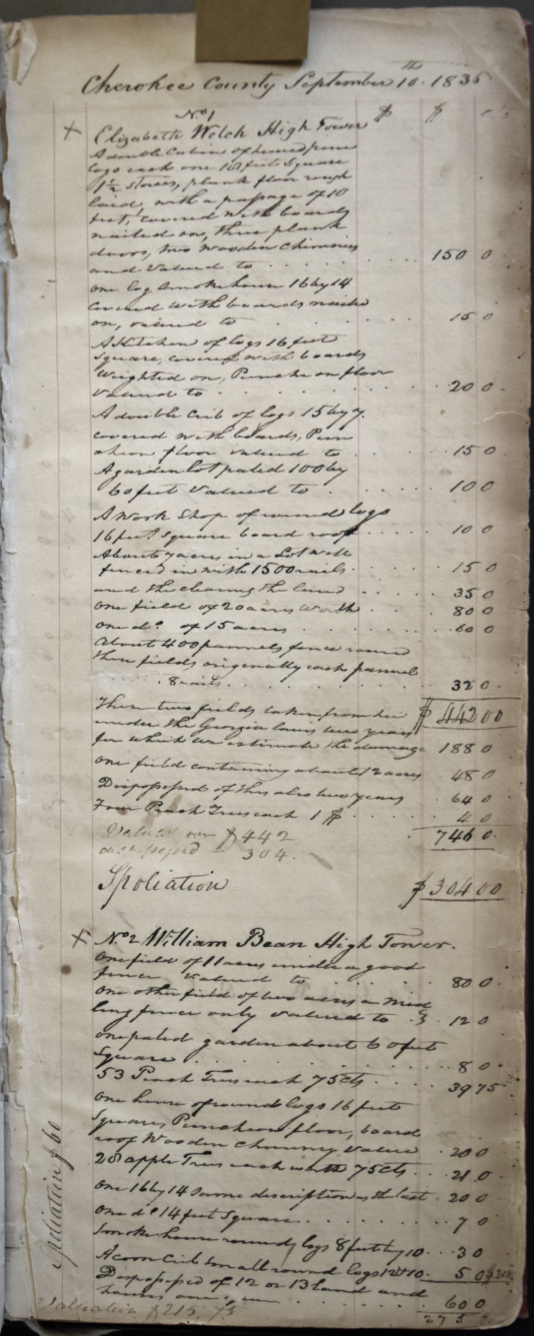 Cherokee County September 10th. 1835
$ $ cts
No 1
X Elizabeth Welch High Tower
A double Cabin of hewed pine
logs each one 18 feet Square
1½ Stories, plank floor rough
laid, with a passage of 10
feet, covered with boards
nailed on, three plank
doors, two Wooden Chimnies
and Valued to . . . . 150 0
one log Smoke house 16 by 14
covered with boards nailed
on, valued to . . . . 15 0
A Kitchen of logs 16 feet
Square, covered with boards
Weighted on, Puncheon floor
Valued to . . . . 20 0
A double Crib of logs 15 by 7
covered with boards, Pun
cheon floor valued to . . 15 0
A garden lot paled 100 by
60 feet Valued to . . . 10 0
A Work Shop of round logs
16 feet square board roof . . 10 0
About 7 acres in a Lot well
fenced in with 1500 rails . . 15 0
and the clearing the land . . 35 0
one field of 20 acres Worth . . 80 0
one do. of 15 acres . . 60 0
About 400 pannels fence round
these fields originally each pannel
8 rails . . . . 32 0
These two fields taken from her $ 442 00
under the Georgia laws two years
for which we estimate the damage 188 0
one field containing about 12 acres 48 0
Dispossessed of this also two years 64 0
Four Peach Trees each 1 $ . . 4 0
746 0
Valued $ 442
304.
Spoliation $ 304 00
X No 2 William Bean High Tower.
One field of 11 acres under a good
fence Valued to . . . 80 0
One other field of two acres a mid
ling fence only valued to . 12 0
one paled garden about 60 feet
Square . . . . 8 0
53 Peach Trees each 75 cts . . . 39 75
One house of round logs 16 feet
Square, Puncheon floor, board
roof Wooden Chimney Value 20 0
28 apple Trees each worth 75 cts . 21 0
One 16 by 14 Same description as the last . 20 0
One do 14 feet Square . . . . 7 0
Smoke house round logs 8 feet by 10 . . 3 0
A corn Crib small round logs 12 by 10 . 5 0
Dispossessed of 12 or 13 land and
houses . . . . 60 0
Spoliation $ 60
Valuation $ 215, 75
275